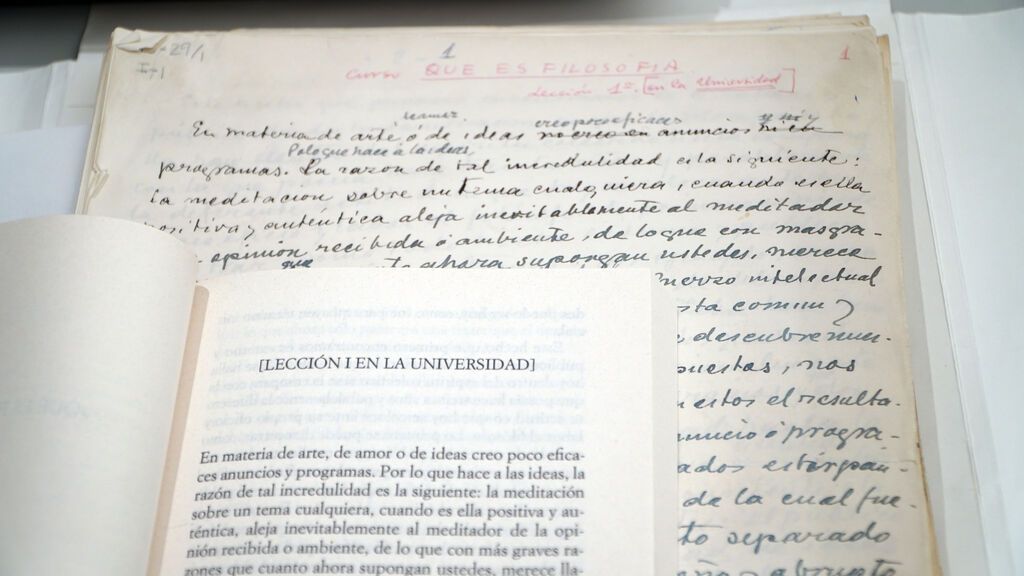 29/1
1
1
Curso QUE ES FILOSOFIA
Lección 1ª. [en la Universidad]
creo poco eficaces
En materia de arte ó de ideas no creo en anuncios ni en
Por lo que hace á las ideas,
programas. La razón de tal incredulidad es la siguiente:
la meditación sobre un tema cualquiera, cuando es ella
positiva y autentica aleja inevitablemente al meditador
opinión recibida ó ambiente, de lo que con mas gra-
que ahora supongan ustedes, merece
intelectual
comun y
descubre nues-
puestas, nos
estos el resulta-
anuncio ó progra-
de la cual fue-
separado
abrupto
[LECCIÓN I EN LA UNIVERSIDAD]
En materia de arte, de amor o de ideas creo poco efica-
ces anuncios y programas. Por lo que hace a las ideas, la
razón de tal incredulidad es la siguiente: la meditación
sobre un tema cualquiera, cuando es ella positiva y au-
téntica, aleja inevitablemente al meditador de la opi-
nión recibida o ambiente, de lo que con más graves ra-
zones que cuanto ahora supongan ustedes, merece lla-